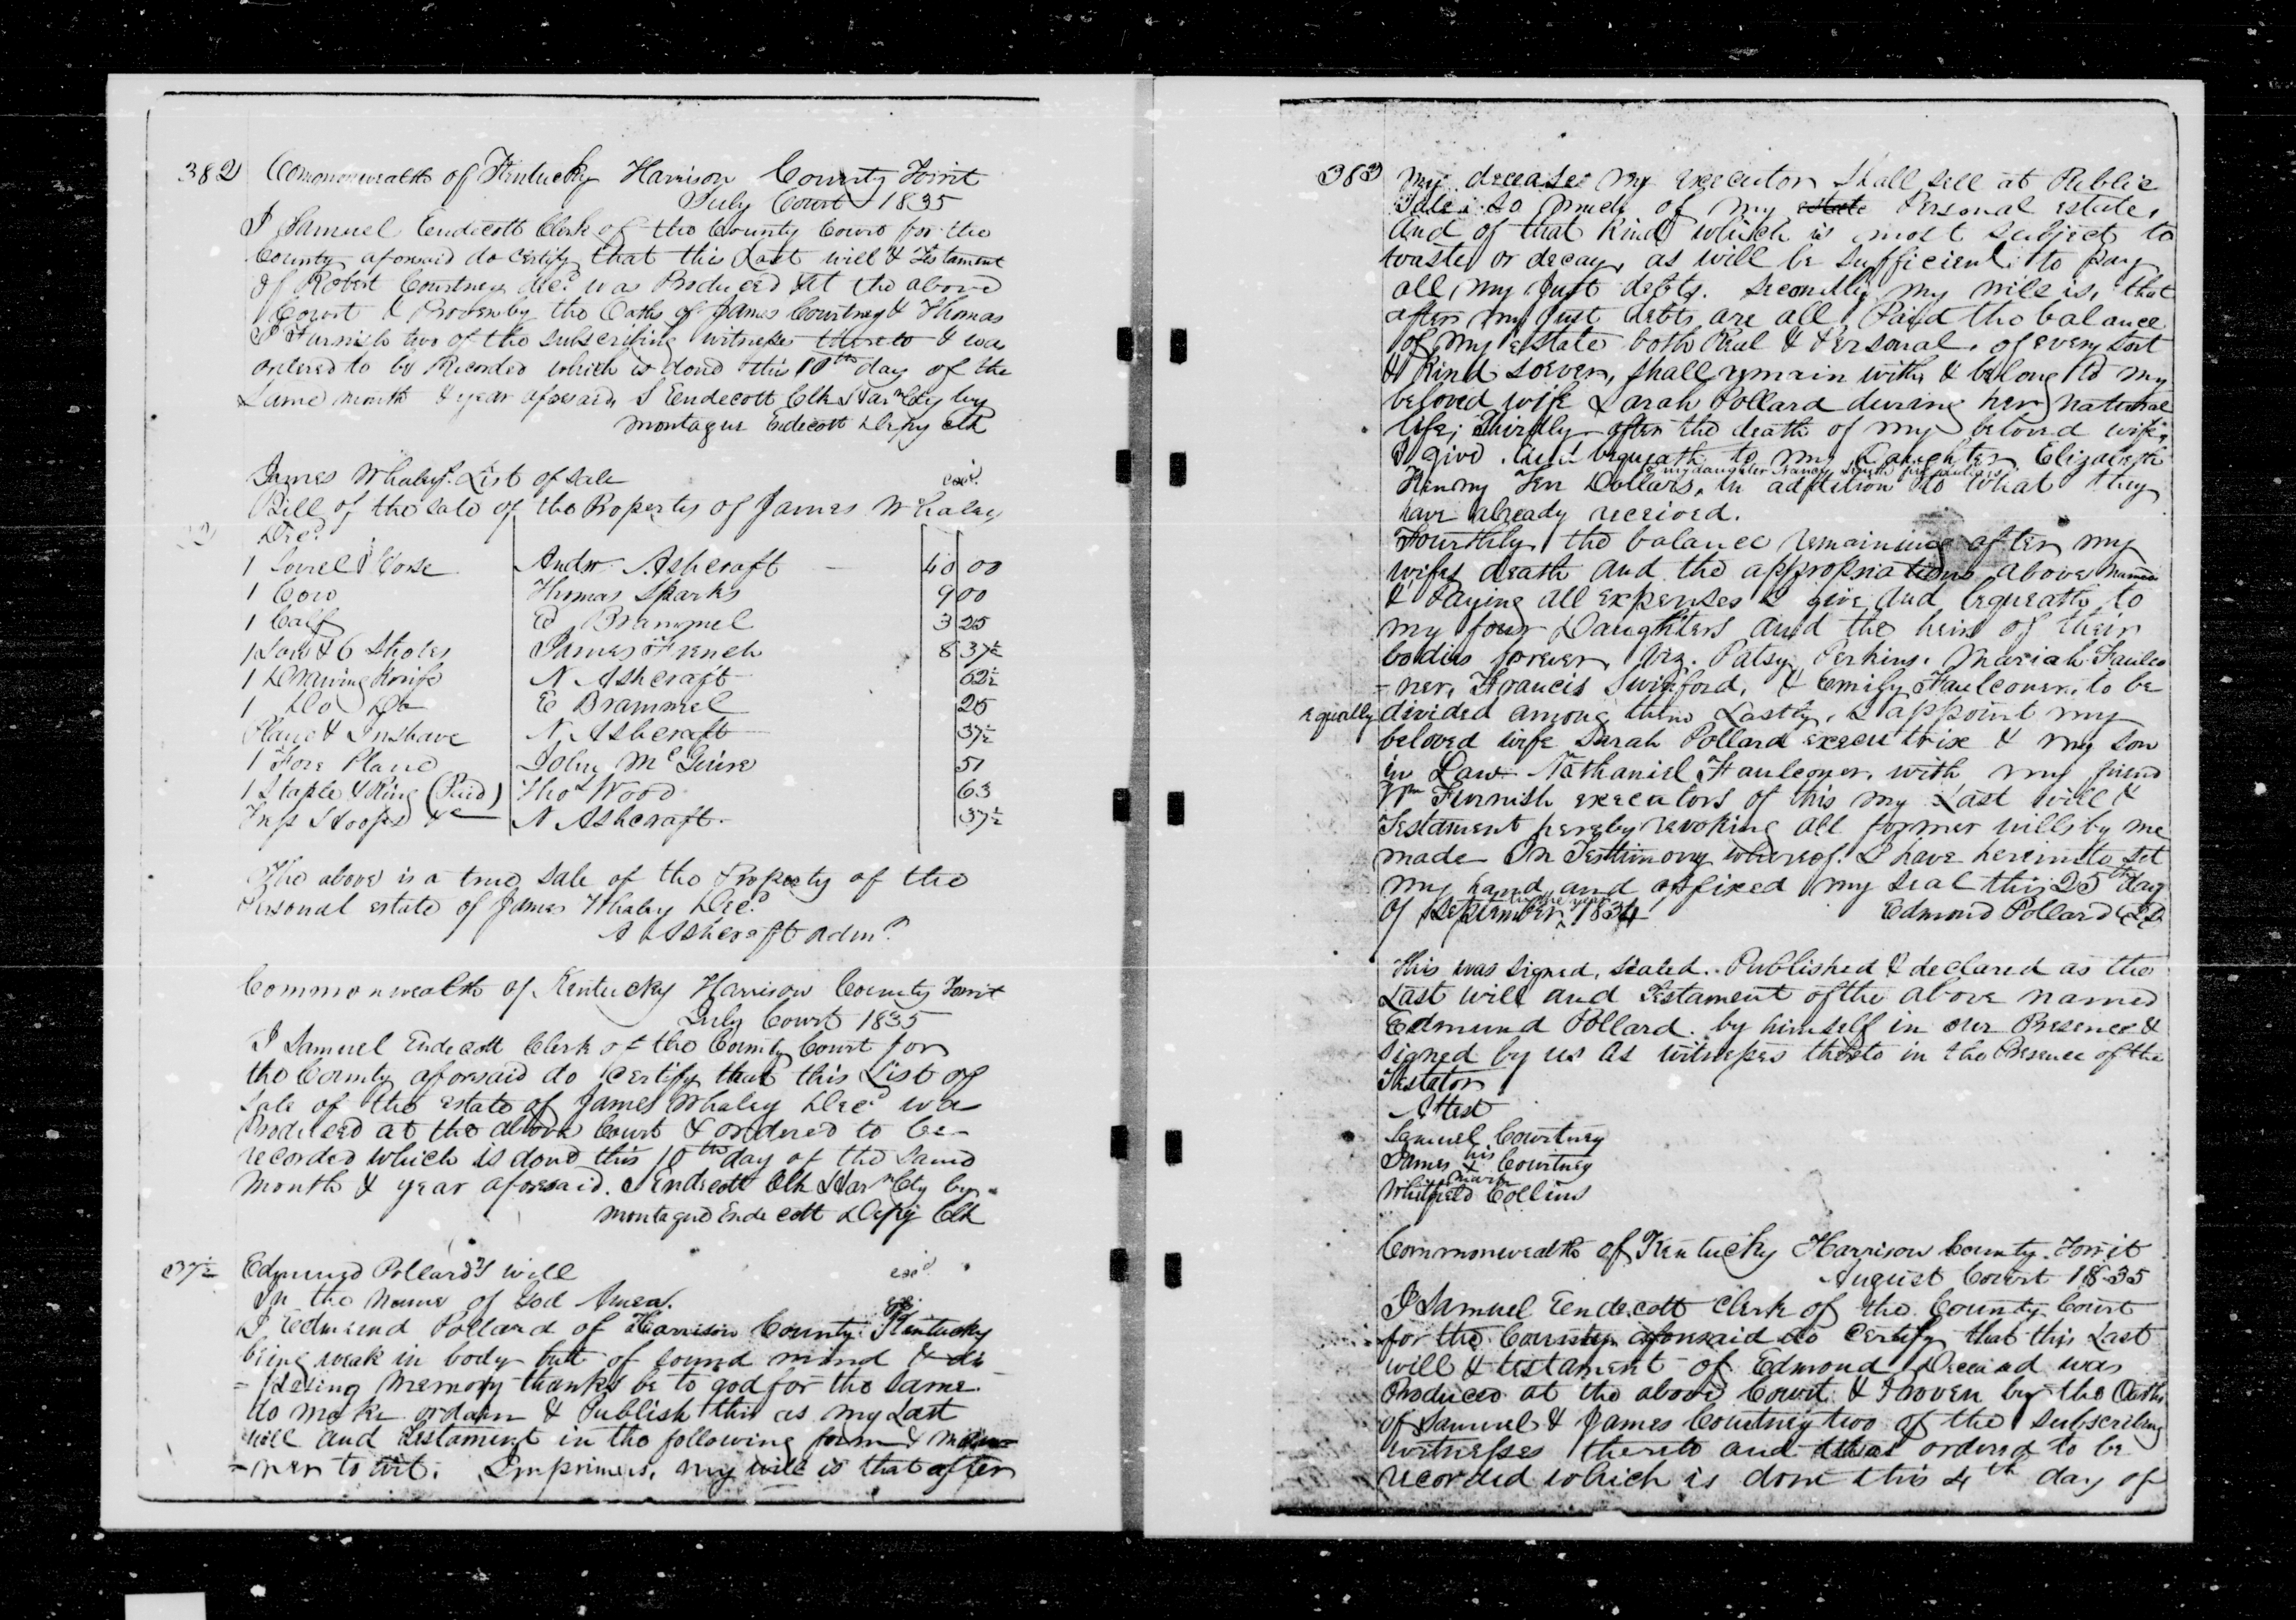 382 Commonwealth of Kentucky Harrison County Towit
July Court 1835
I Samuel Endecott Clerk of the County Court for the
County aforesaid do certify that this Last will & Testament
of Robert Courtney decd was Produced at the above
Court & Proven by the Oaths of James Courtney & Thomas
Furnish two of the subscribing witness thereto & was
ordered to be Recorded which is done this 10th day of the
same month & year aforesaid, S Endecott Clk Harn Cty by
Montague Endecott Depy clk
James Whaley List of Sale exd
Bill of the sale of the Property of James Whaley
Decd
1 Sorrel Horse Andw Ashcraft 40 00
1 Cow Thomas Sparks 9 00
1 Calf E Brammel 3 25
1 Sow & 6 Shotes James French 8 37½
1 Drawing Knife N Ashcraft 62½
1 Do Do E Brammel 25
Plane & Inshave N. Ashcraft 37½
1 Fore Plane John McGuire 51
1 Staple & Ring (Paid) Thos Wood 63
Hoops &c N Ashcraft 37½
The above is a true sale of the Property of the
Personal estate of James Whaley Decd
A Ashcraft admr
Commonwealth of Kentucky Harrison County Towit
July Court 1835
I Samuel Endecott Clerk of the County Court for
the County aforesaid do certify that this List of
Sale of the estate of James Whaley Decd was
Produced at the above Court & ordered to be
recorded which is done this 10th day of the same
month & year aforesaid. S Endecott Clk Harn Cty by
Montague Endecott Depy Clk
37½ Edmund Pollard's will exd
In the Name of God Amen.
I Edmund Pollard of Harrison County Kentucky
being weak in body but of sound mind & dis
=posing memory thanks be to god for the same
do make ordain & Publish this as my Last
will and Testament in the following form & man=
=ner to wit. Imprimis, my will is that after
383 my decease my executor shall sell at Public
Sale, so much of my estate Personal estate,
and of that kind which is most subject to
waste or decay, as will be sufficient to pay
all my just debts. Secondly my will is, that
after my just debts are all Paid the balance
of my estate both Real & Personal, of every sort
& kind soever, shall remain with & belong to my
beloved wife Sarah Pollard during her natural
life; Thirdly after the death of my beloved wife,
I give and bequeath to my Daughter Elizabeth
my daughter Nancy Smith five dollars
Kenny Ten Dollars, in addition to what they
have already received.
Fourthly the balance remaining after my
wifes death and the appropriations above named
& Paying all expenses I give and bequeath to
my four Daughters and the heirs of their
bodies forever, Viz. Patsy Perkins, Mariah Faulco
=ner, Francis Swinford, & Emily Faulconer, to be
equally divided among them Lastly, I appoint my
beloved wife Sarah Pollard executrix & my son
in Law Nathaniel Faulconer, with my friend
Wm Furnish executors of this my Last will &
Testament hereby revoking all former wills by me
made In Testimony whereof I have hereunto set
my hand and affixed my seal this 25th day
of September 1834 Edmond Pollard
This was signed, sealed, Published & declared as the
Last will and Testament of the above named
Edmund Pollard by himself in our Presence &
signed by us as witnesses thereto in the Presence of the
Testator
Attest
Samuel Courtney
his
James x Courtney
mark
Whitfield Collins
Commonwealth of Kentucky Harrison County Towit
August Court 1835
I Samuel Endecott clerk of the County Court
for the County aforesaid do Certify that this Last
will & testament of Edmond Deceased was
Produced at the above Court & Proven by the Oaths
of Samuel & James Courtney two of the subscribing
witnesses thereto and was ordered to be
recorded which is done this 4th day of